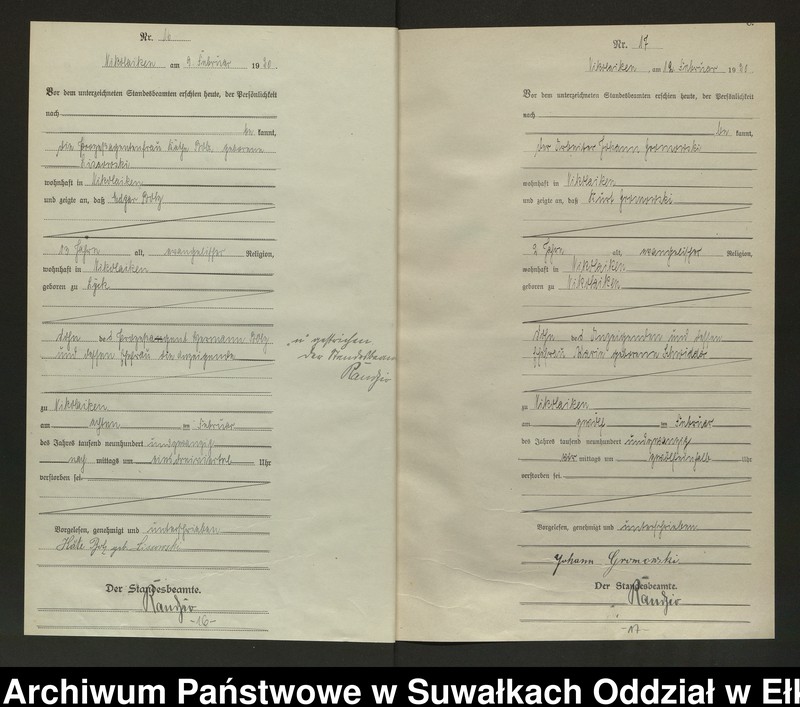 Nr. 16
Nikolaiken am 9 Februar 1920.
Vor dem unterzeichneten Standesbeamten erschien heute, der Persönlichkeit
nach
be kannt,
die Prozeßagentenfrau Käthe Bolz geborene
Lisowski
wohnhaft in Nikolaiken
und zeigte an, daß Edgar Bolz
13 Jahre alt, evangelischer Religion,
wohnhaft in Nikolaiken
geboren zu Lyck
Sohn des Prozeßagent Hermann Bolz
und dessen Ehefrau die Anzeigende
zu Nikolaiken
am achten im Februar
des Jahres tausend neunhundert undzwanzig
nach mittags um eindreiviertel Uhr
verstorben sei.
Vorgelesen, genehmigt und unterschrieben
Käte Bolz geb Lisowski
Der Standesbeamte.
-16-
n gestrichen
Der Standesbeamte
Nr. 17
Nikolaiken, am 12 Februar 1920.
Vor dem unterzeichneten Standesbeamten erschien heute, der Persönlichkeit
nach
be kannt,
der Arbeiter Johann Gromowski
wohnhaft in Nikolaiken
und zeigte an, daß Kurt Gromowski
2 Jahre alt, evangelischer Religion,
wohnhaft in Nikolaiken
geboren zu Nikolaiken
Sohn des Anzeigenden und dessen
Ehefrau Marie geborene
zu Nikolaiken
am zwölf im Februar
des Jahres tausend neunhundert undzwanzig
vor mittags um Uhr
verstorben sei.
Vorgelesen, genehmigt und unterschrieben
Johann Gromowski.
Der Standesbeamte.
-17-
Archiwum Państwowe w Suwałkach Oddział w Ełk